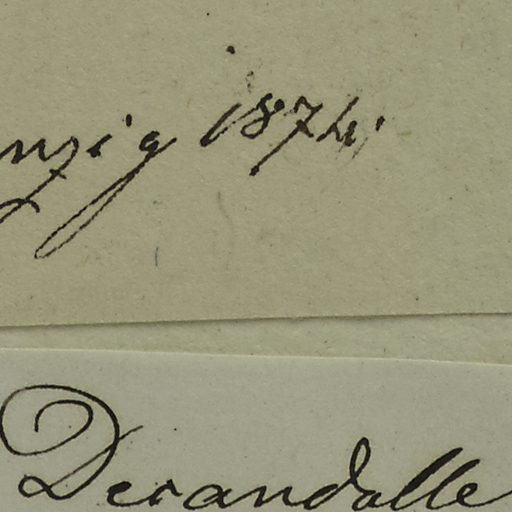 nzig 1874.
Derandalle